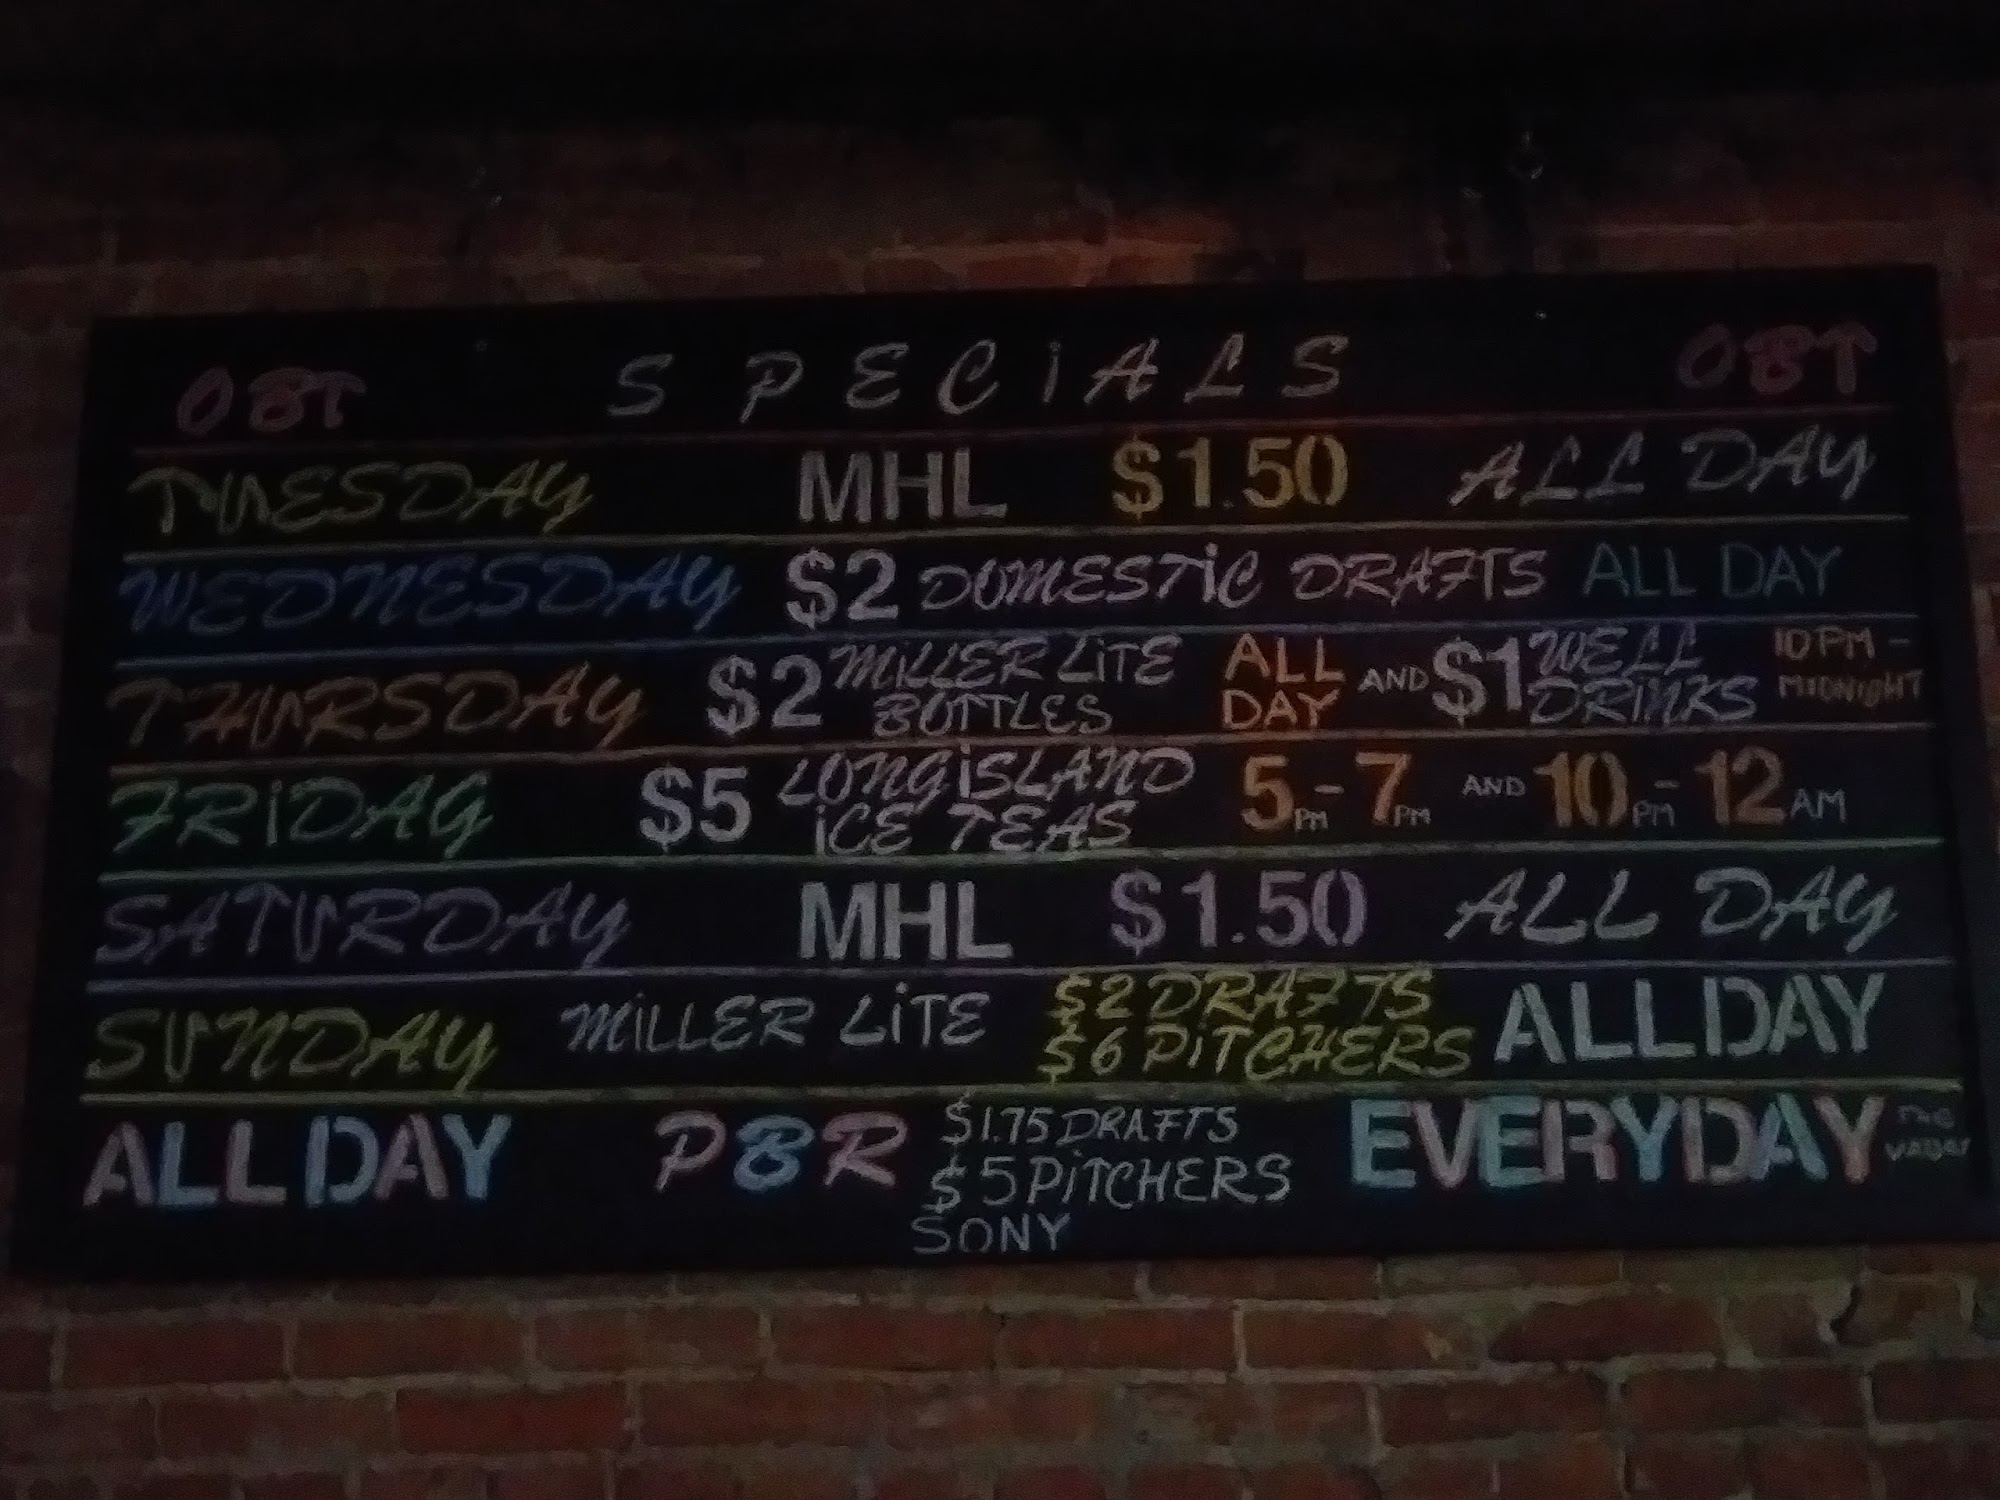 OBT SPECiALS OBT
TUESDAY MHL $1.50 ALL DAY
WEDNESDAY $2 DOMESTiC DRAFTS ALL DAY
THURSDAY $2 MiLLER LiTE BOTTLES ALL DAY AND $1 WELL DRiNKS 10PM - MiDNiGHT
FRiDAY $5 LONG iSLAND iCE TEAS 5PM - 7PM AND 10PM - 12AM
SATURDAY MHL $1.50 ALL DAY
SUNDAY MiLLER LiTE $2 DRAFTS $6 PiTCHERS ALL DAY
ALL DAY PBR $1.75 DRAFTS $5 PiTCHERS EVERYDAY
SONY